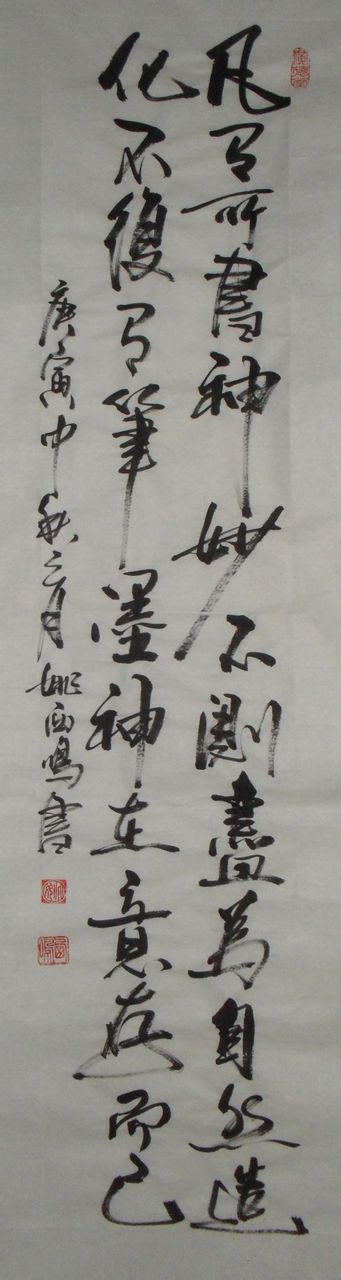 凡有所書神妙不測盡為自然造
化不復有筆墨神在意存而已
庚寅中秋之月姚西鳴書